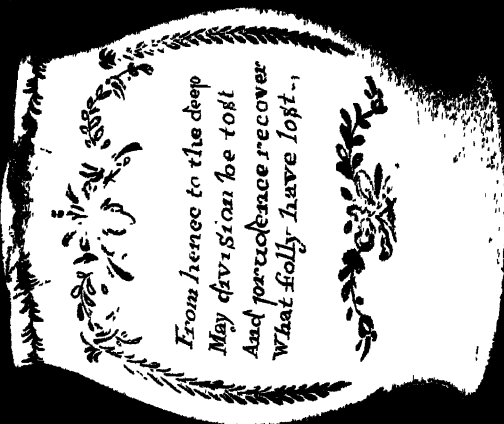 From hence to the deep
May division be tost
And prudence recover
What folly have lost-,